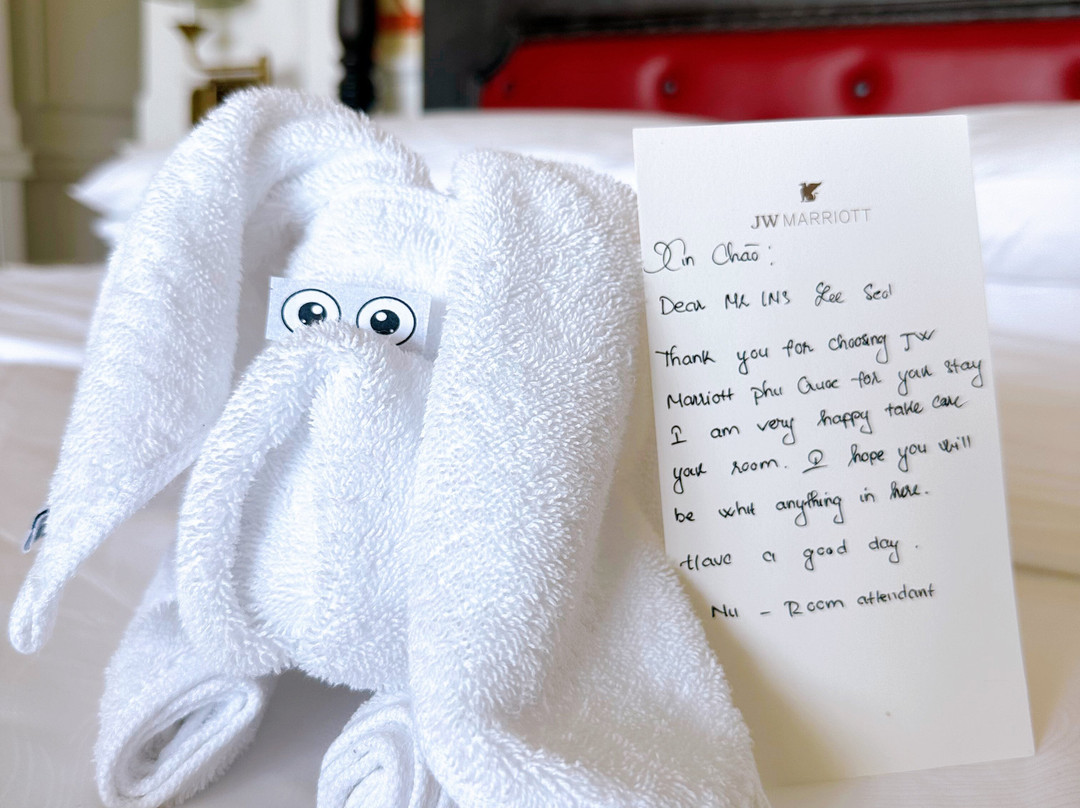 JW MARRIOTT
Xin Chào:
Dear Mr LNS Lee Seol
Thank you for choosing JW
Marriott Phu Quoc for your stay
I am very happy take care
your room. I hope you will
be whit anything in here.
Have a good day.
Nu - Room attendant